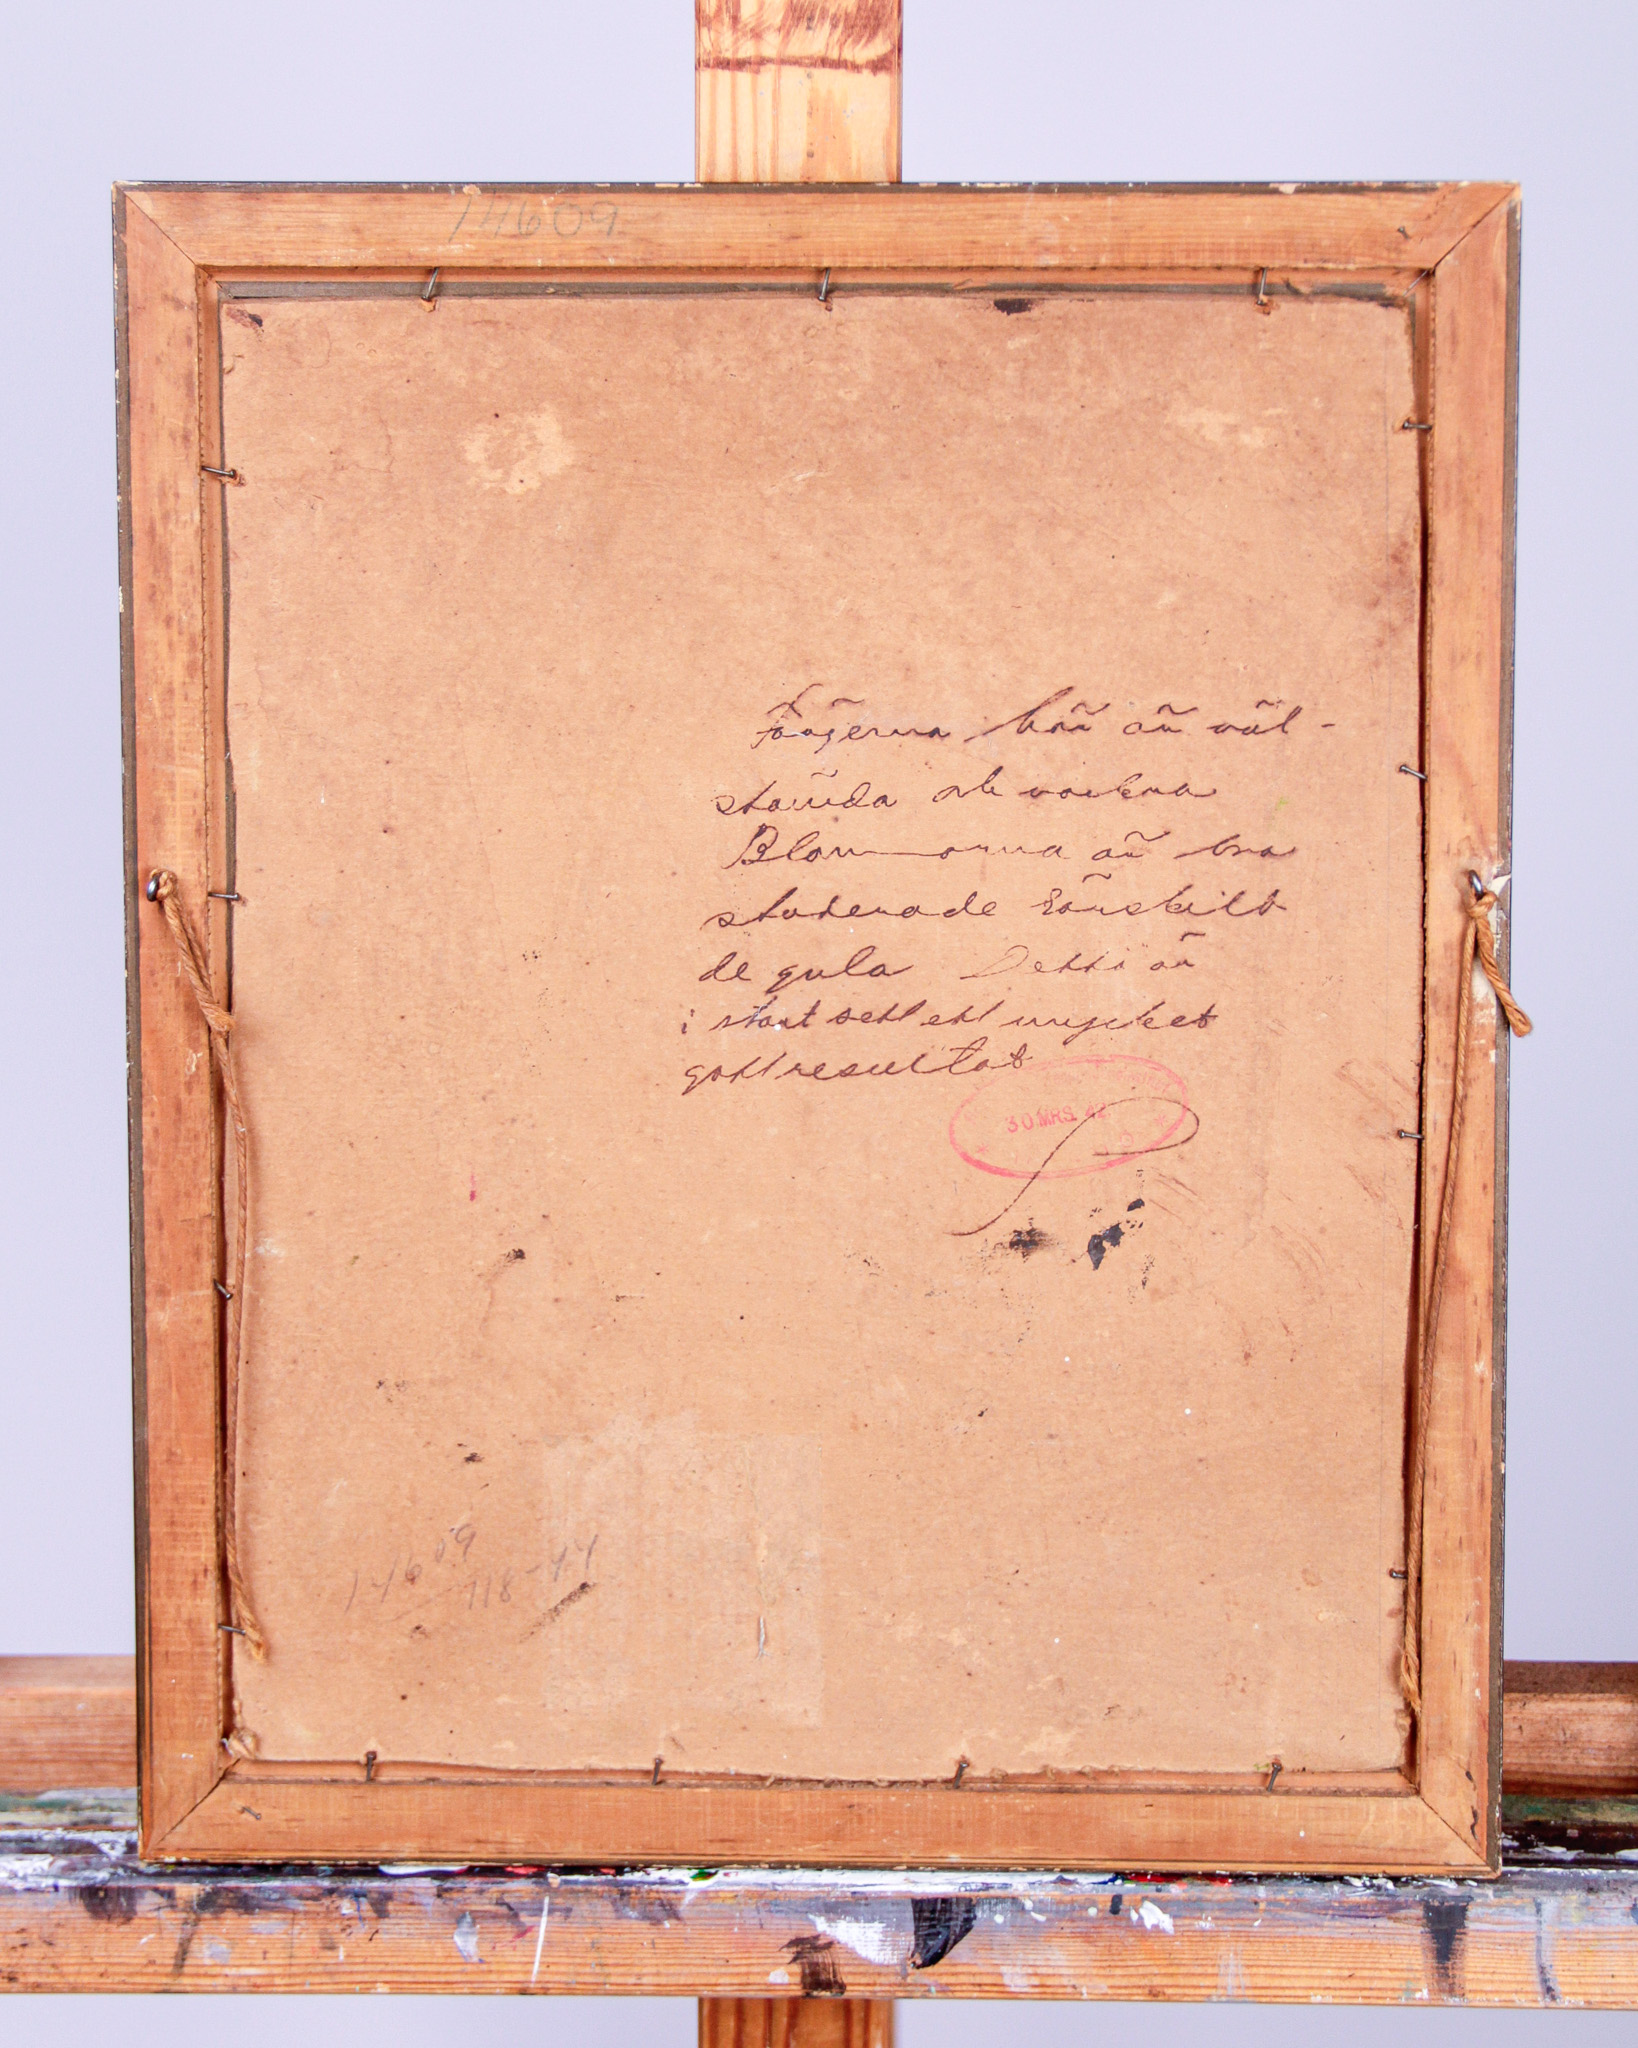 14609
Färgerna här är väl-
stämda och vackra
Blommorna är bra
studerade särskilt
de gula Detta är
i stort sett ett mycket
gott resultat
30 MRS. 42
14609
718-44